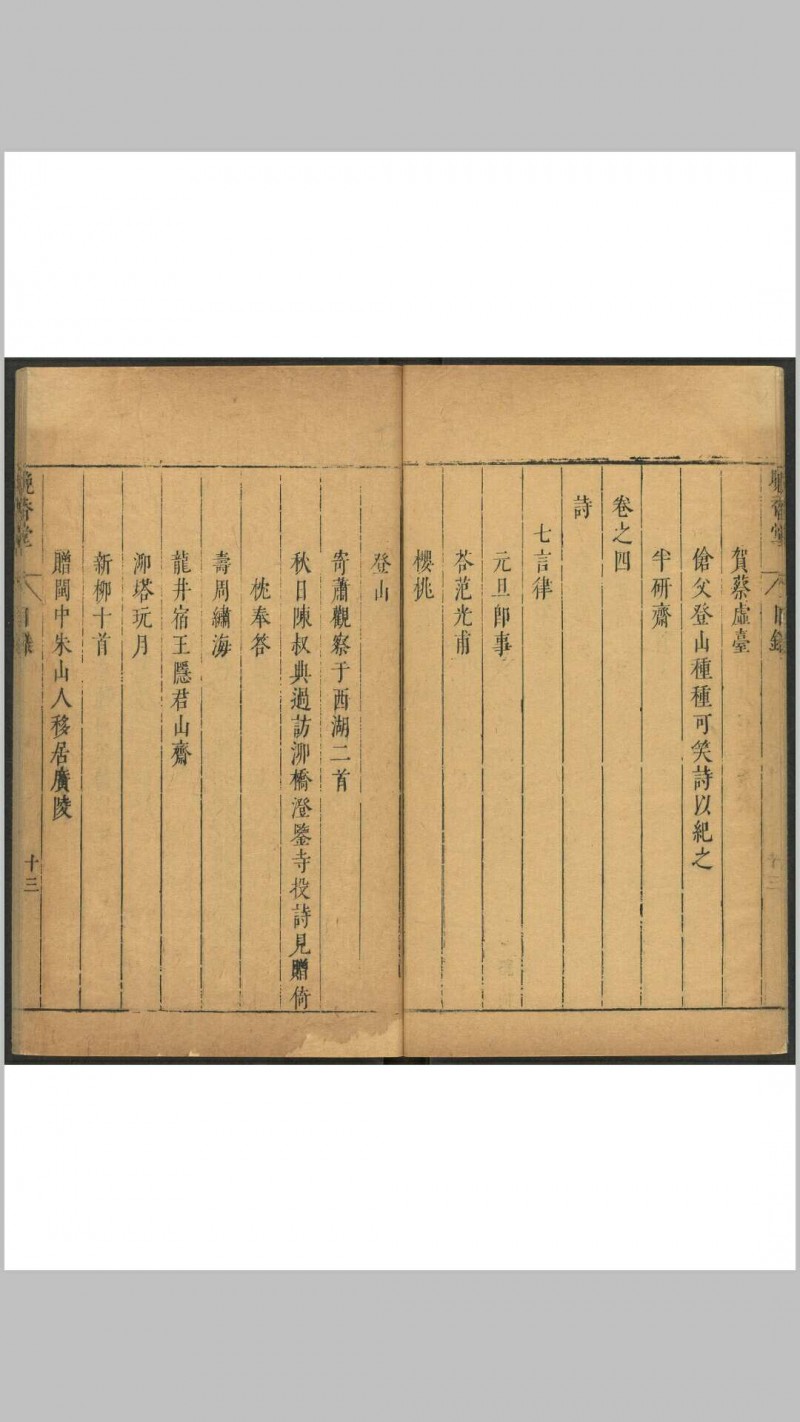 賀蔡虛臺
傖父登山種種可笑詩以紀之
半研齋
卷之四
詩
七言律
元旦卽事
荅范光甫
櫻桃
登山
寄蕭觀察于西湖二首
秋日陳叔典過訪泖橋澄鑒寺投詩見贈倚
枕奉答
壽周繡海
龍井宿王隱君山齋
泖塔玩月
新柳十首
贈閩中朱山人移居廣陵
晚香堂
目錄
十三